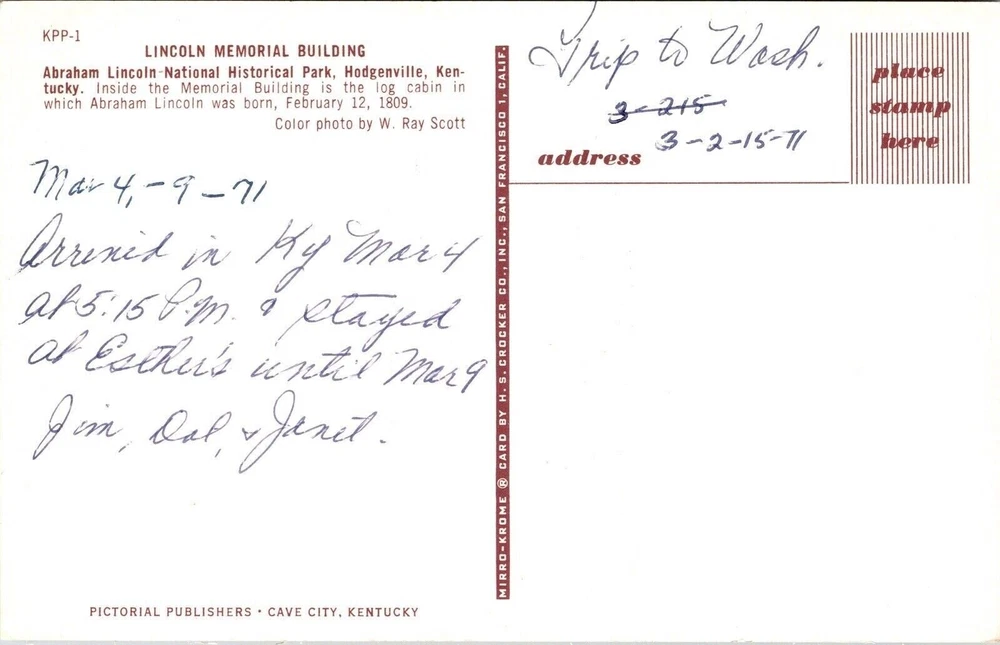 KPP-1
LINCOLN MEMORIAL BUILDING
Abraham Lincoln National Historical Park, Hodgenville, Ken-
tucky. Inside the Memorial Building is the log cabin in
which Abraham Lincoln was born, February 12, 1809.
Color photo by W. Ray Scott
Mar 4,-9-71
Arrived in Ky Mar 4
at 5:15 P.M. & stayed
at Esther's until Mar 9
Jim, Dal, & Janet.
PICTORIAL PUBLISHERS • CAVE CITY, KENTUCKY
MIRRO-KROME ® CARD BY H. S. CROCKER CO., INC., SAN FRANCISCO 1, CALIF.
Trip to Wash.
3-215
3-2-15-71
address
place
stamp
here